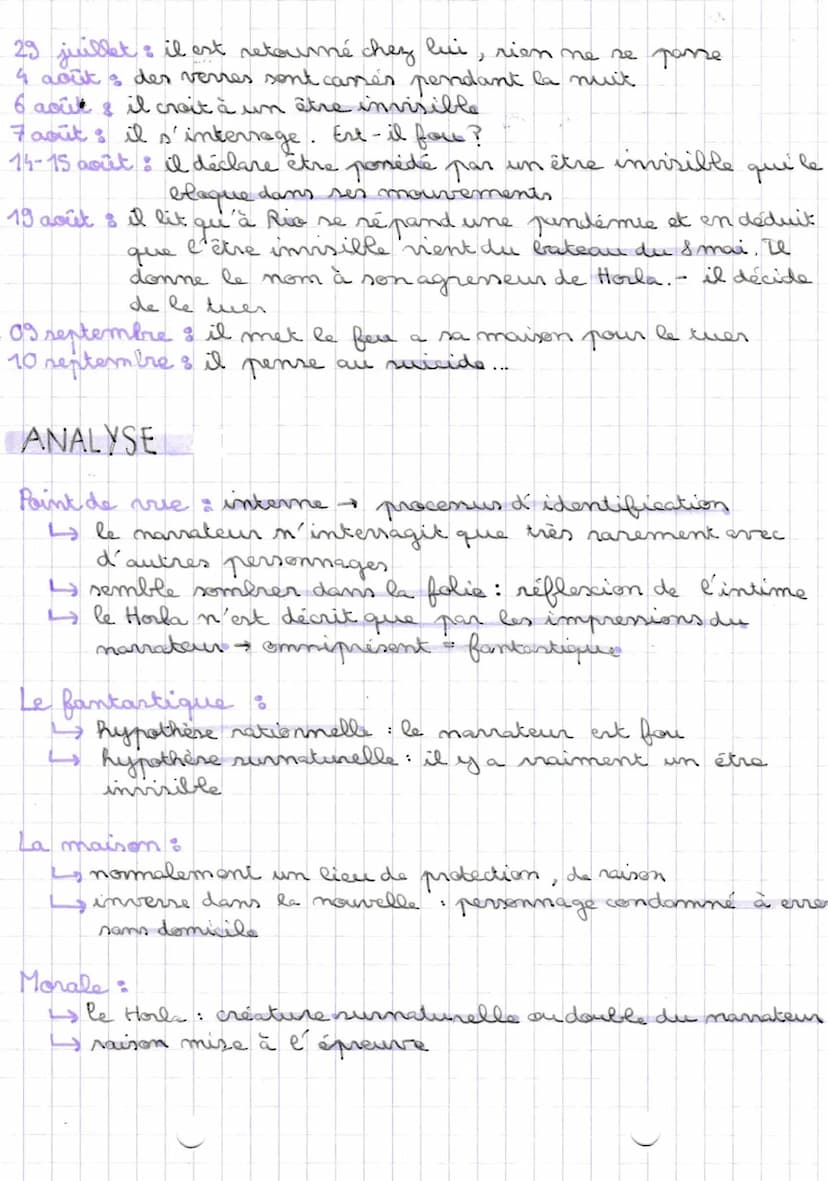 29 juillet : il est retourné chez lui, rien ne se passe
4 août : des verres sont cassés pendant la nuit
6 août : il croit à un être invisible
7 août : il s'interroge. Est-il fou ?
14-15 août : il déclare être possédé par un être invisible qui le
bloque dans ses mouvements
19 août : il lit qu'à Rio se répand une pandémie et en déduit
que l'être invisible vient du bateau du 8 mai. Il
donne le nom à son agresseur de Horla. - il décide
de le tuer
09 septembre : il met le feu a sa maison pour le tuer
10 septembre : il pense au suicide...
ANALYSE
Point de vue : interne → processus d'identification
↳ le narrateur n'interragit que très rarement avec
d'autres personnages
↳ semble sombrer dans la folie : réflexion de l'intime
↳ le Horla n'est décrit que par les impressions du
narrateur → omniprésent = fantastique
Le fantastique :
↳ hypothèse rationnelle : le narrateur est fou
↳ hypothèse surnaturelle : il y a vraiment un être
invisible
La maison :
↳ normalement un lieu de protection, de raison
↳ inverse dans la nouvelle : personnage condamné à errer
sans domicile
Morale :
↳ le Horla : créature surnaturelle ou double du narrateur
↳ raison mise à l'épreuve